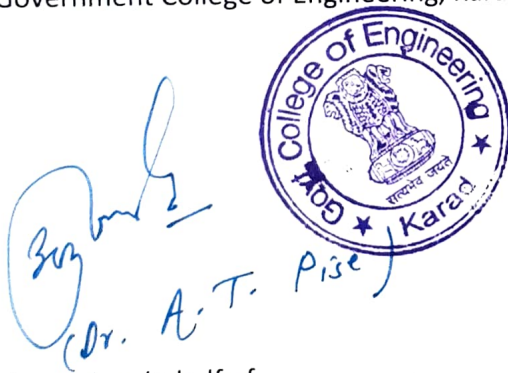 Government College of Engineering, Kara
Govt College of Engineering
★ Karad ★
सत्यमेव जयते
(Dr. A. T. Pise)
behalf of